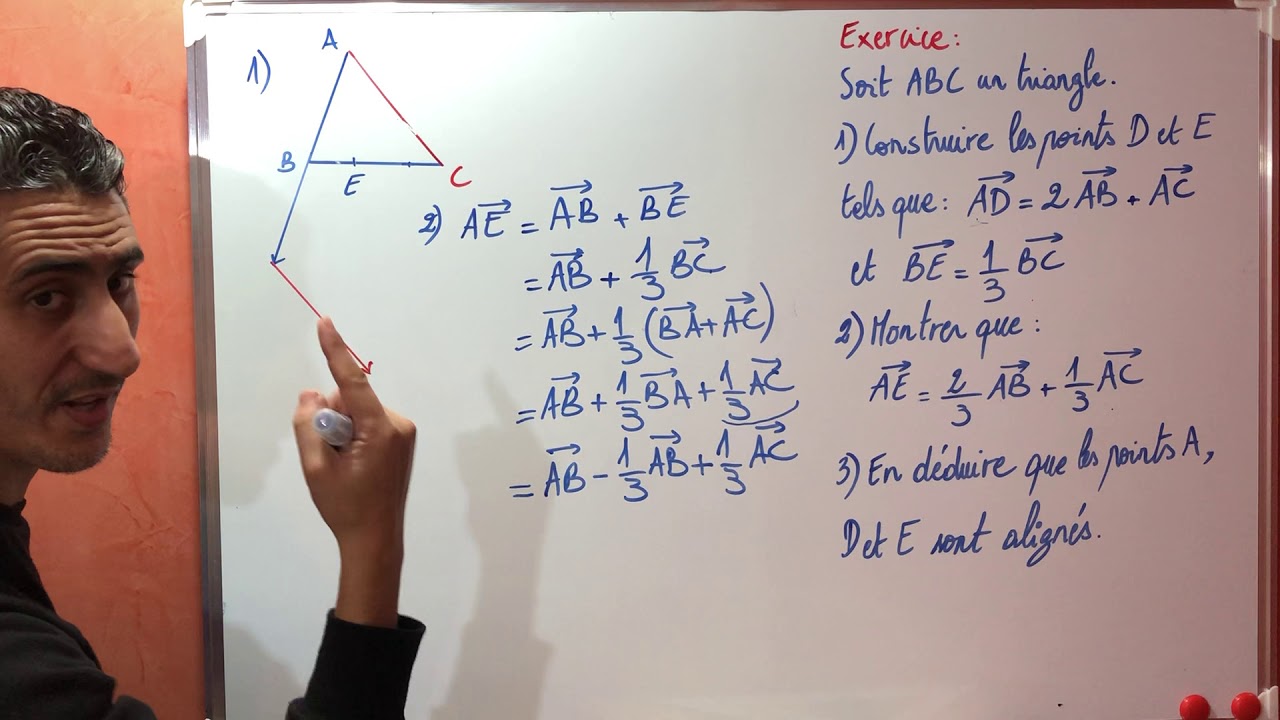 1)
A
B
E
C
2) AE⃗ = AB⃗ + BE⃗
= AB⃗ + 1/3 BC⃗
= AB⃗ + 1/3 (BA⃗ + AC⃗)
= AB⃗ + 1/3 BA⃗ + 1/3 AC⃗
= AB⃗ - 1/3 AB⃗ + 1/3 AC⃗
Exercice:
Soit ABC un triangle.
1) Construire les points D et E
tels que: AD⃗ = 2 AB⃗ + AC⃗
et BE⃗ = 1/3 BC⃗
2) Montrer que :
AE⃗ = 2/3 AB⃗ + 1/3 AC⃗
3) En déduire que les points A,
D et E sont alignés.